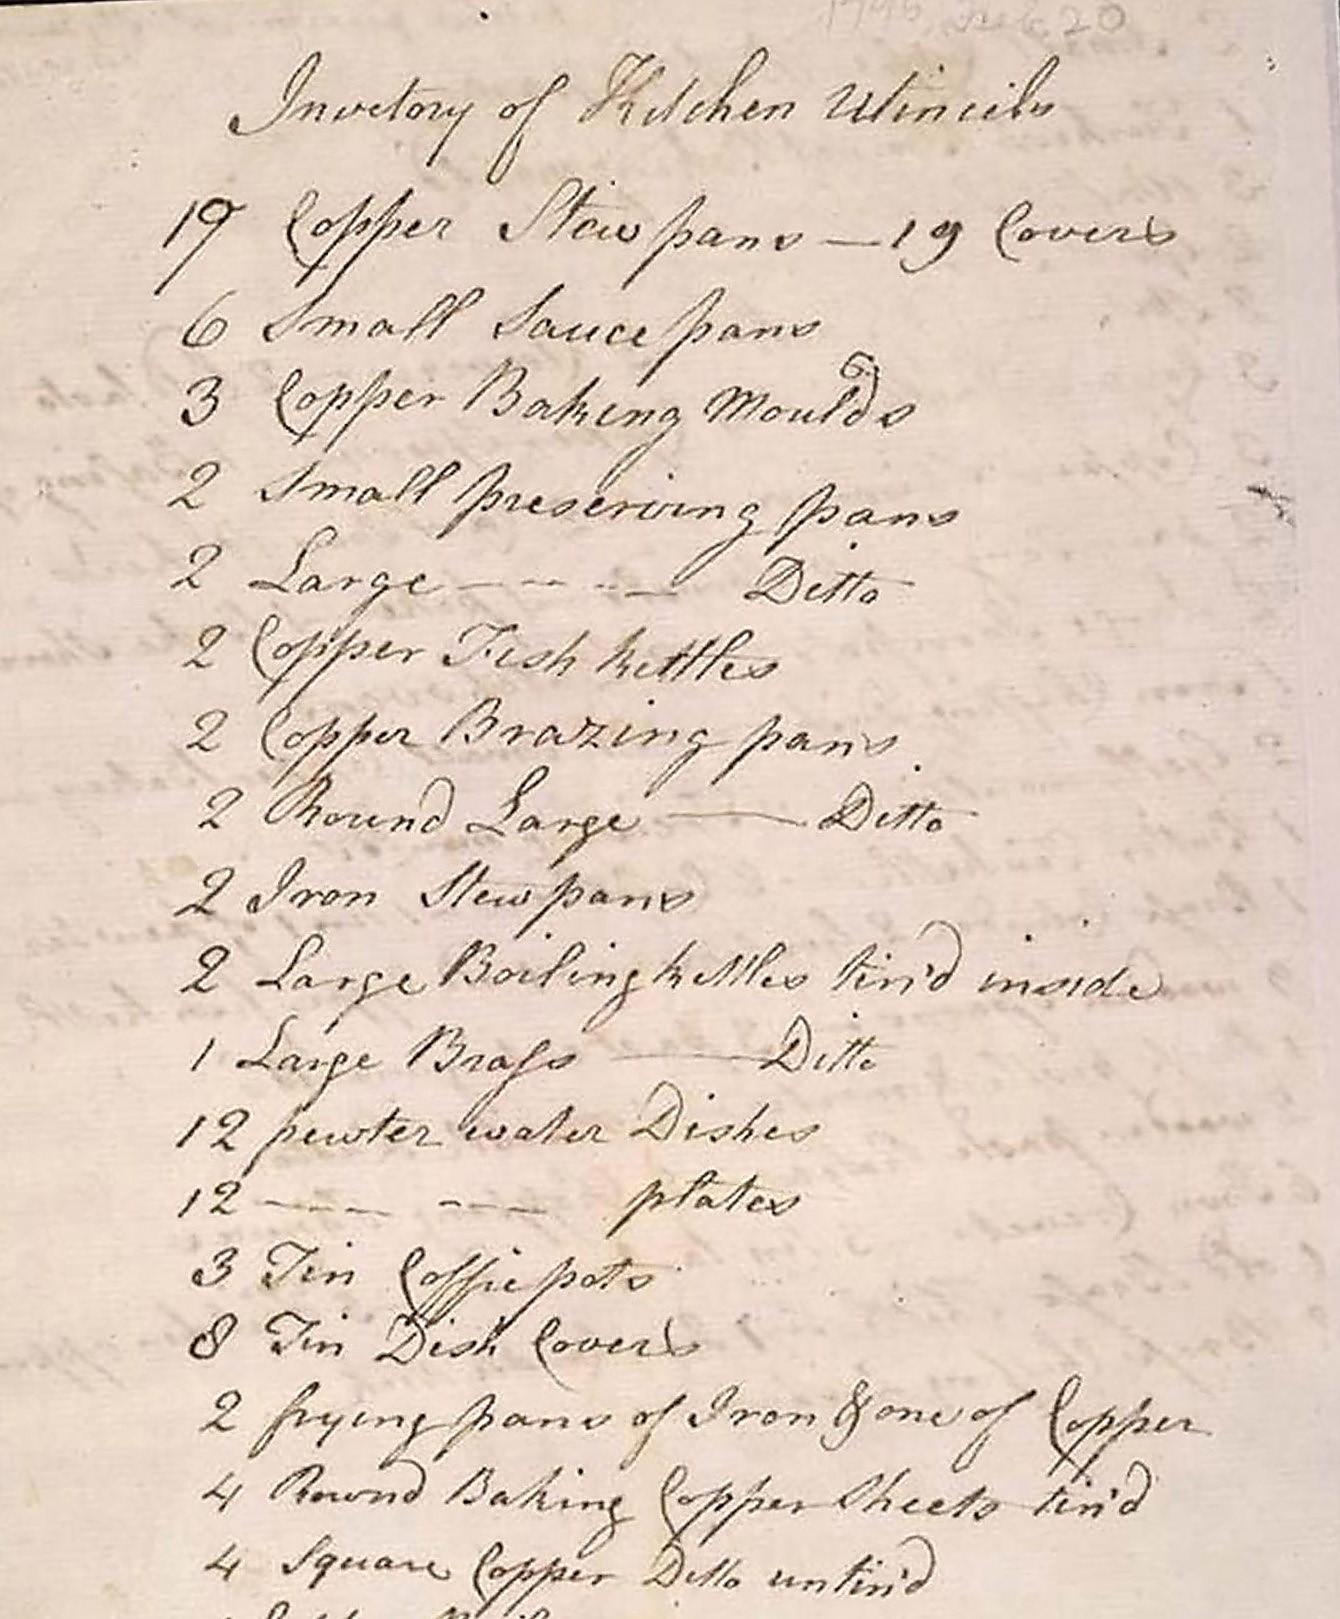 1796, Feb. 20
Invetory of Kitchen Utincils
19 Copper Stew pans — 19 Covers
6 Small Sauce pans
3 Copper Baking Moulds
2 Small preserving pans
2 Large - - - - Ditto
2 Copper Fish kettles
2 Copper Brazing pans
2 Round Large — Ditto
2 Iron Stew pans
2 Large Boiling kettles tin'd inside
1 Large Brass — Ditto
12 pewter water Dishes
12 - - - - plates
3 Tin Coffie pots
8 Tin Dish Covers
2 frying pans of Iron & one of Copper
4 Round Baking Copper Sheets tin'd
4 Square Copper Ditto untin'd